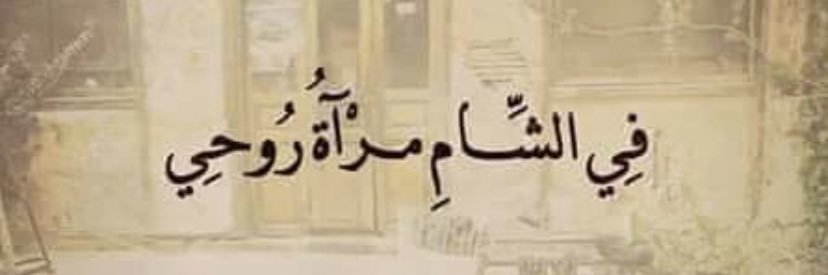 فِي الشَّامِ مرْآةُ رُوحِي